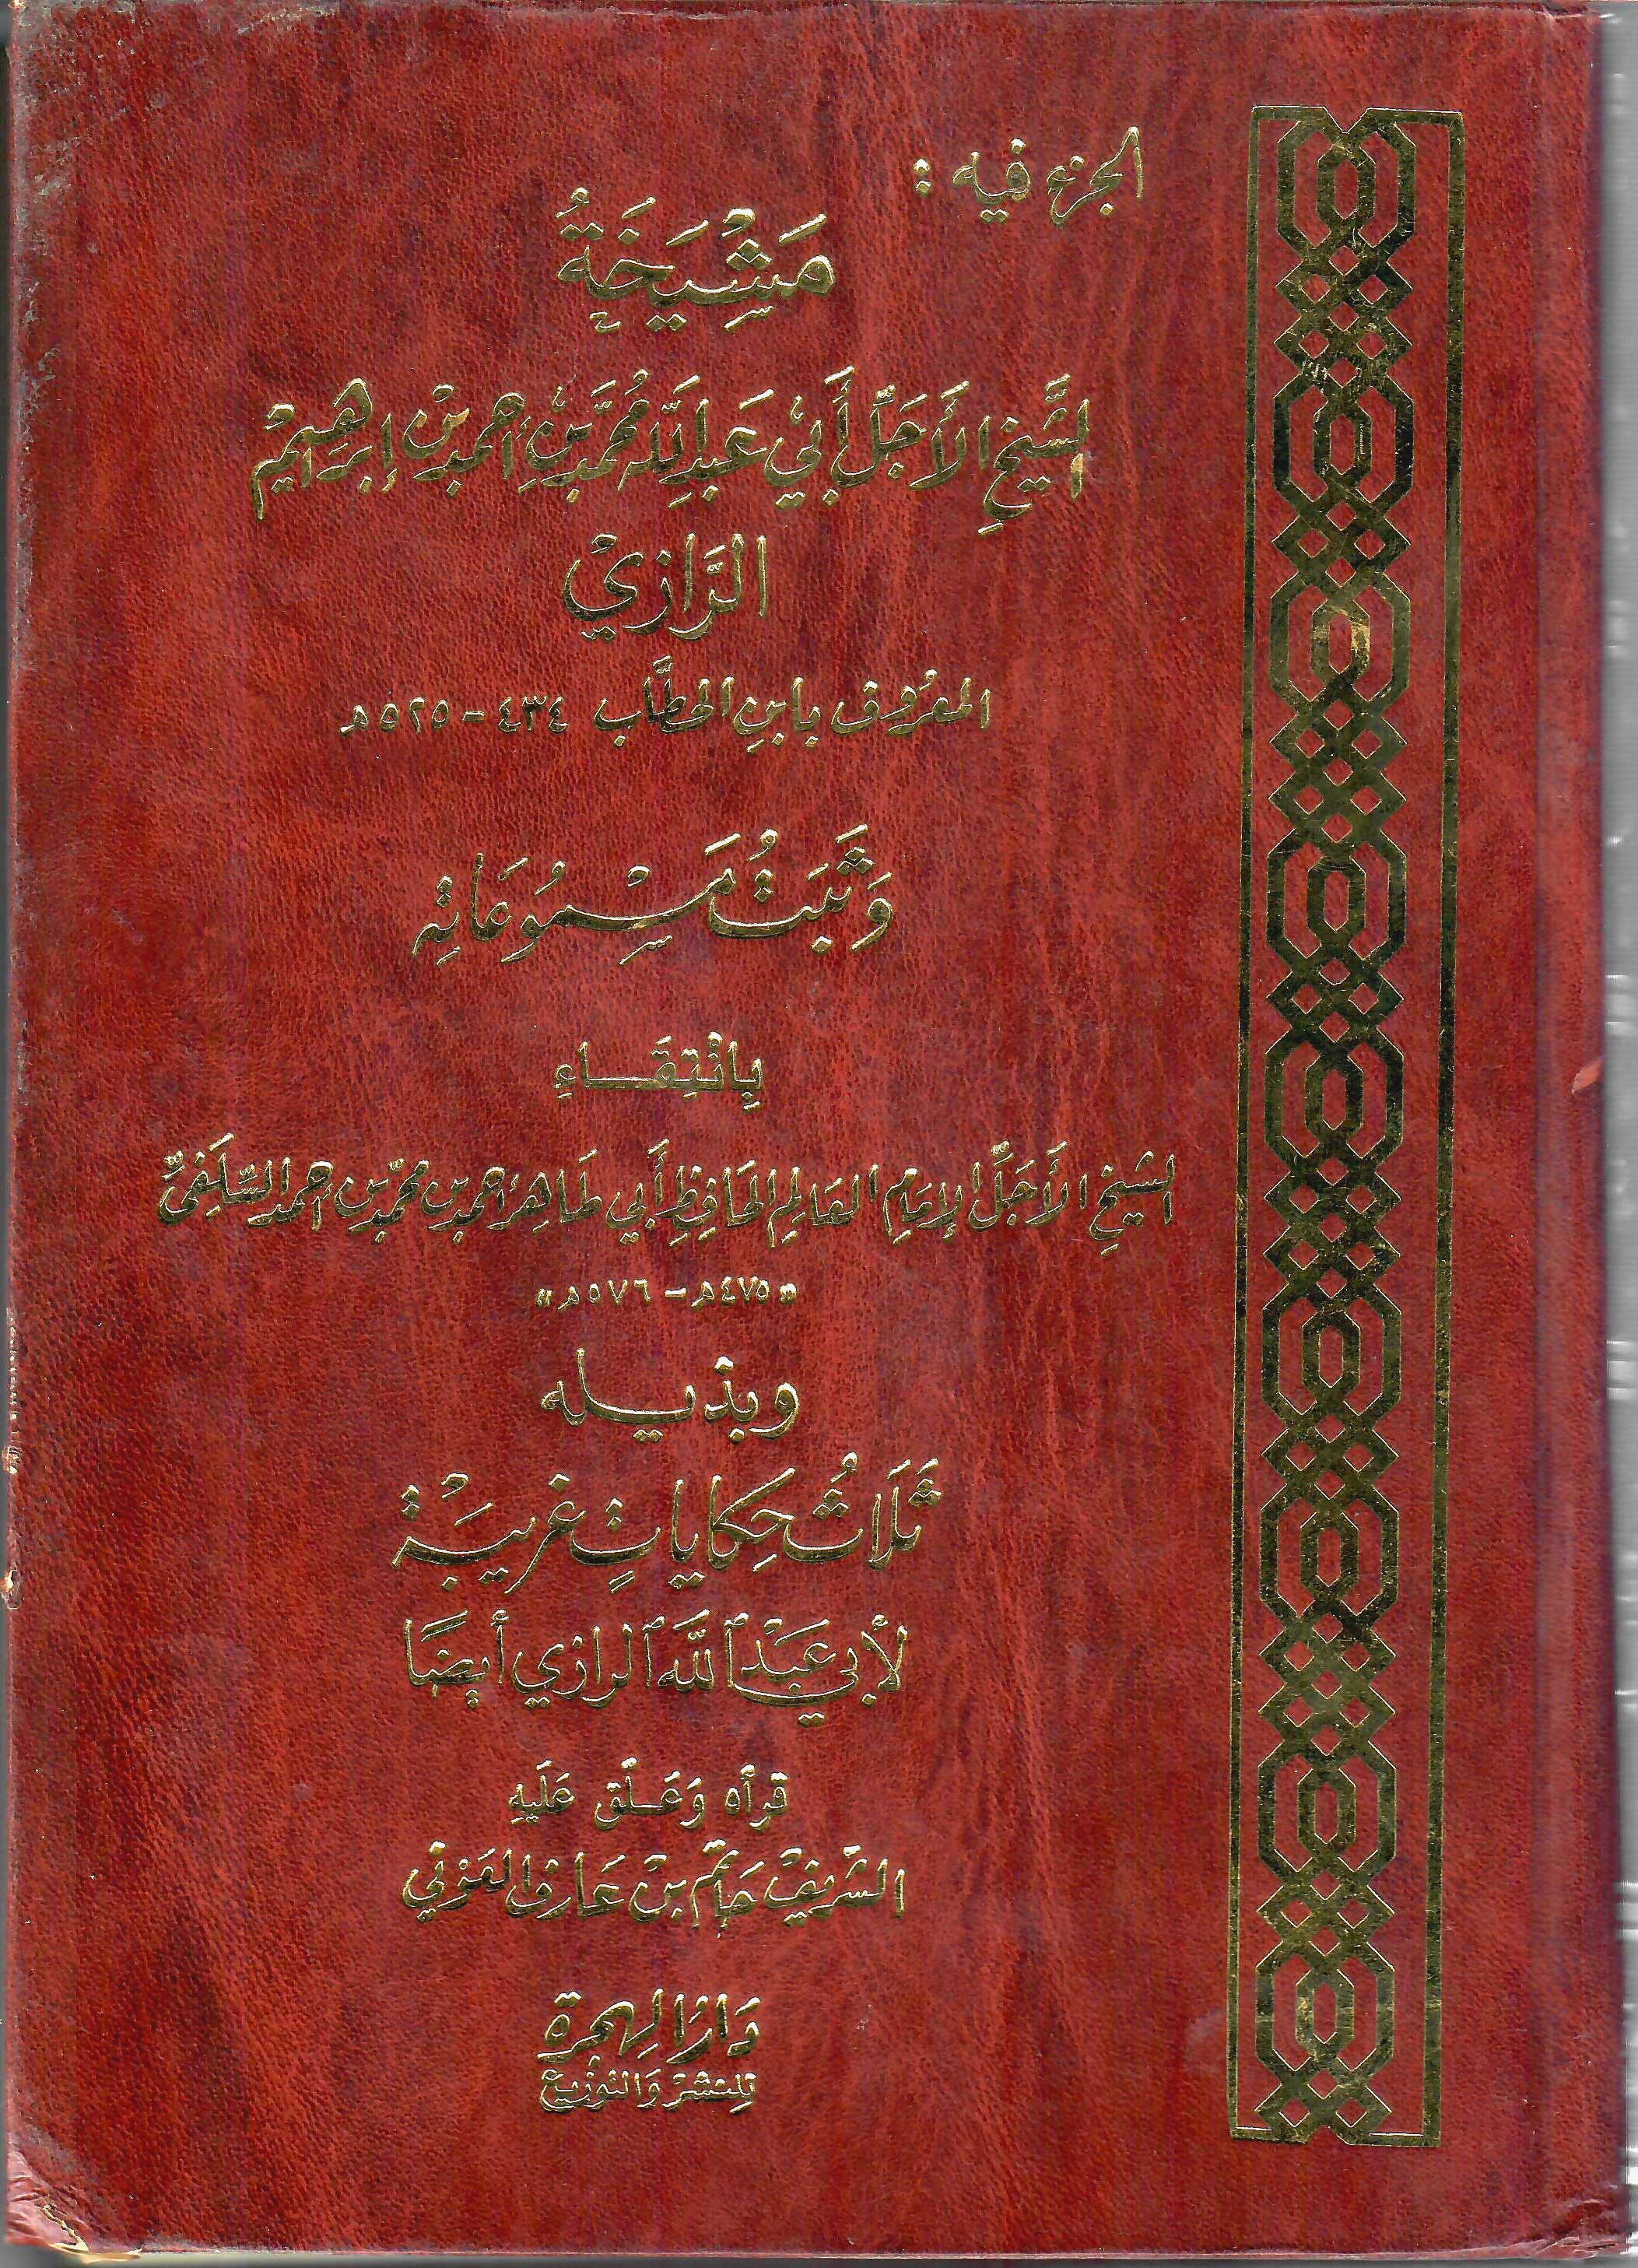 الجزء فيه :
مَشْيَخَةُ
الشَّيْخِ الأَجَلِّ أَبِيْ عَبْدِ اللَّهِ مُحَمَّدِ بْنِ أحمد بْن إبراهِيْم
الرَّازِيْ
المعرُوف بابنِ الحطَّاب ٤٣٤ - ٥٢٥هـ
وَثَبَتُ مَسْمُوعَاتِهِ
بِانْتِقَاءِ
الشيخِ الأَجَلِّ الإِمَامِ العَالِمِ الحَافِظِ أَبي طَاهِر احمد بن محمّد بن احمد السِّلَفيِّ
«٤٧٥هـ - ٥٧٦هـ»
وبذيله
ثَلَاثُ حِكَايَاتٍ غَريبَةْ
لأبي عَبْد اللَّه الرازي أيضَا
قرأه وَعَلّق عَلَيهِ
الشّريفْ حَاتم بنْ عَارف العَوْني
دَارُ الهِجرَة
لِلنشرْ وَالتوزيع